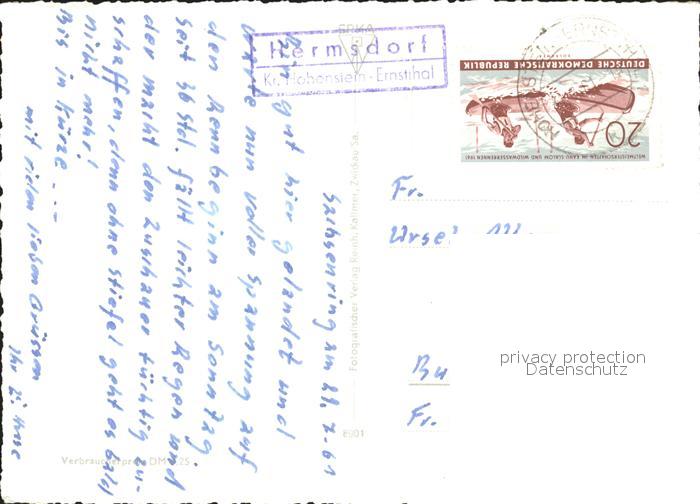 Sachsenring am 22. 7. 61
Bin gut hier gelandet und
warte nun voller Spannung auf
den Rennbeginn am Sonntag.
Seit 36 Std. fällt leichter Regen und
der macht den Zuschauer tüchtig zu
schaffen, denn ohne Stiefel geht es bald
nicht mehr!
Bis in Kürze ---
mit vielen lieben Grüssen
Ihr
ERKA
Hermsdorf
Kr. Hohenstein-Ernstthal
DEUTSCHE DEMOKRATISCHE REPUBLIK
20
WELTMEISTERSCHAFTEN IM KANU SLALOM UND WILDWASSERRENNEN 1961
Fr.
Ursel
Bu
Fr.
privacy protection
Datenschutz
Fotografischer Verlag Reinh. Kallmer, Zwickau Sa.
8901
Verbraucherpreis DM 0,25